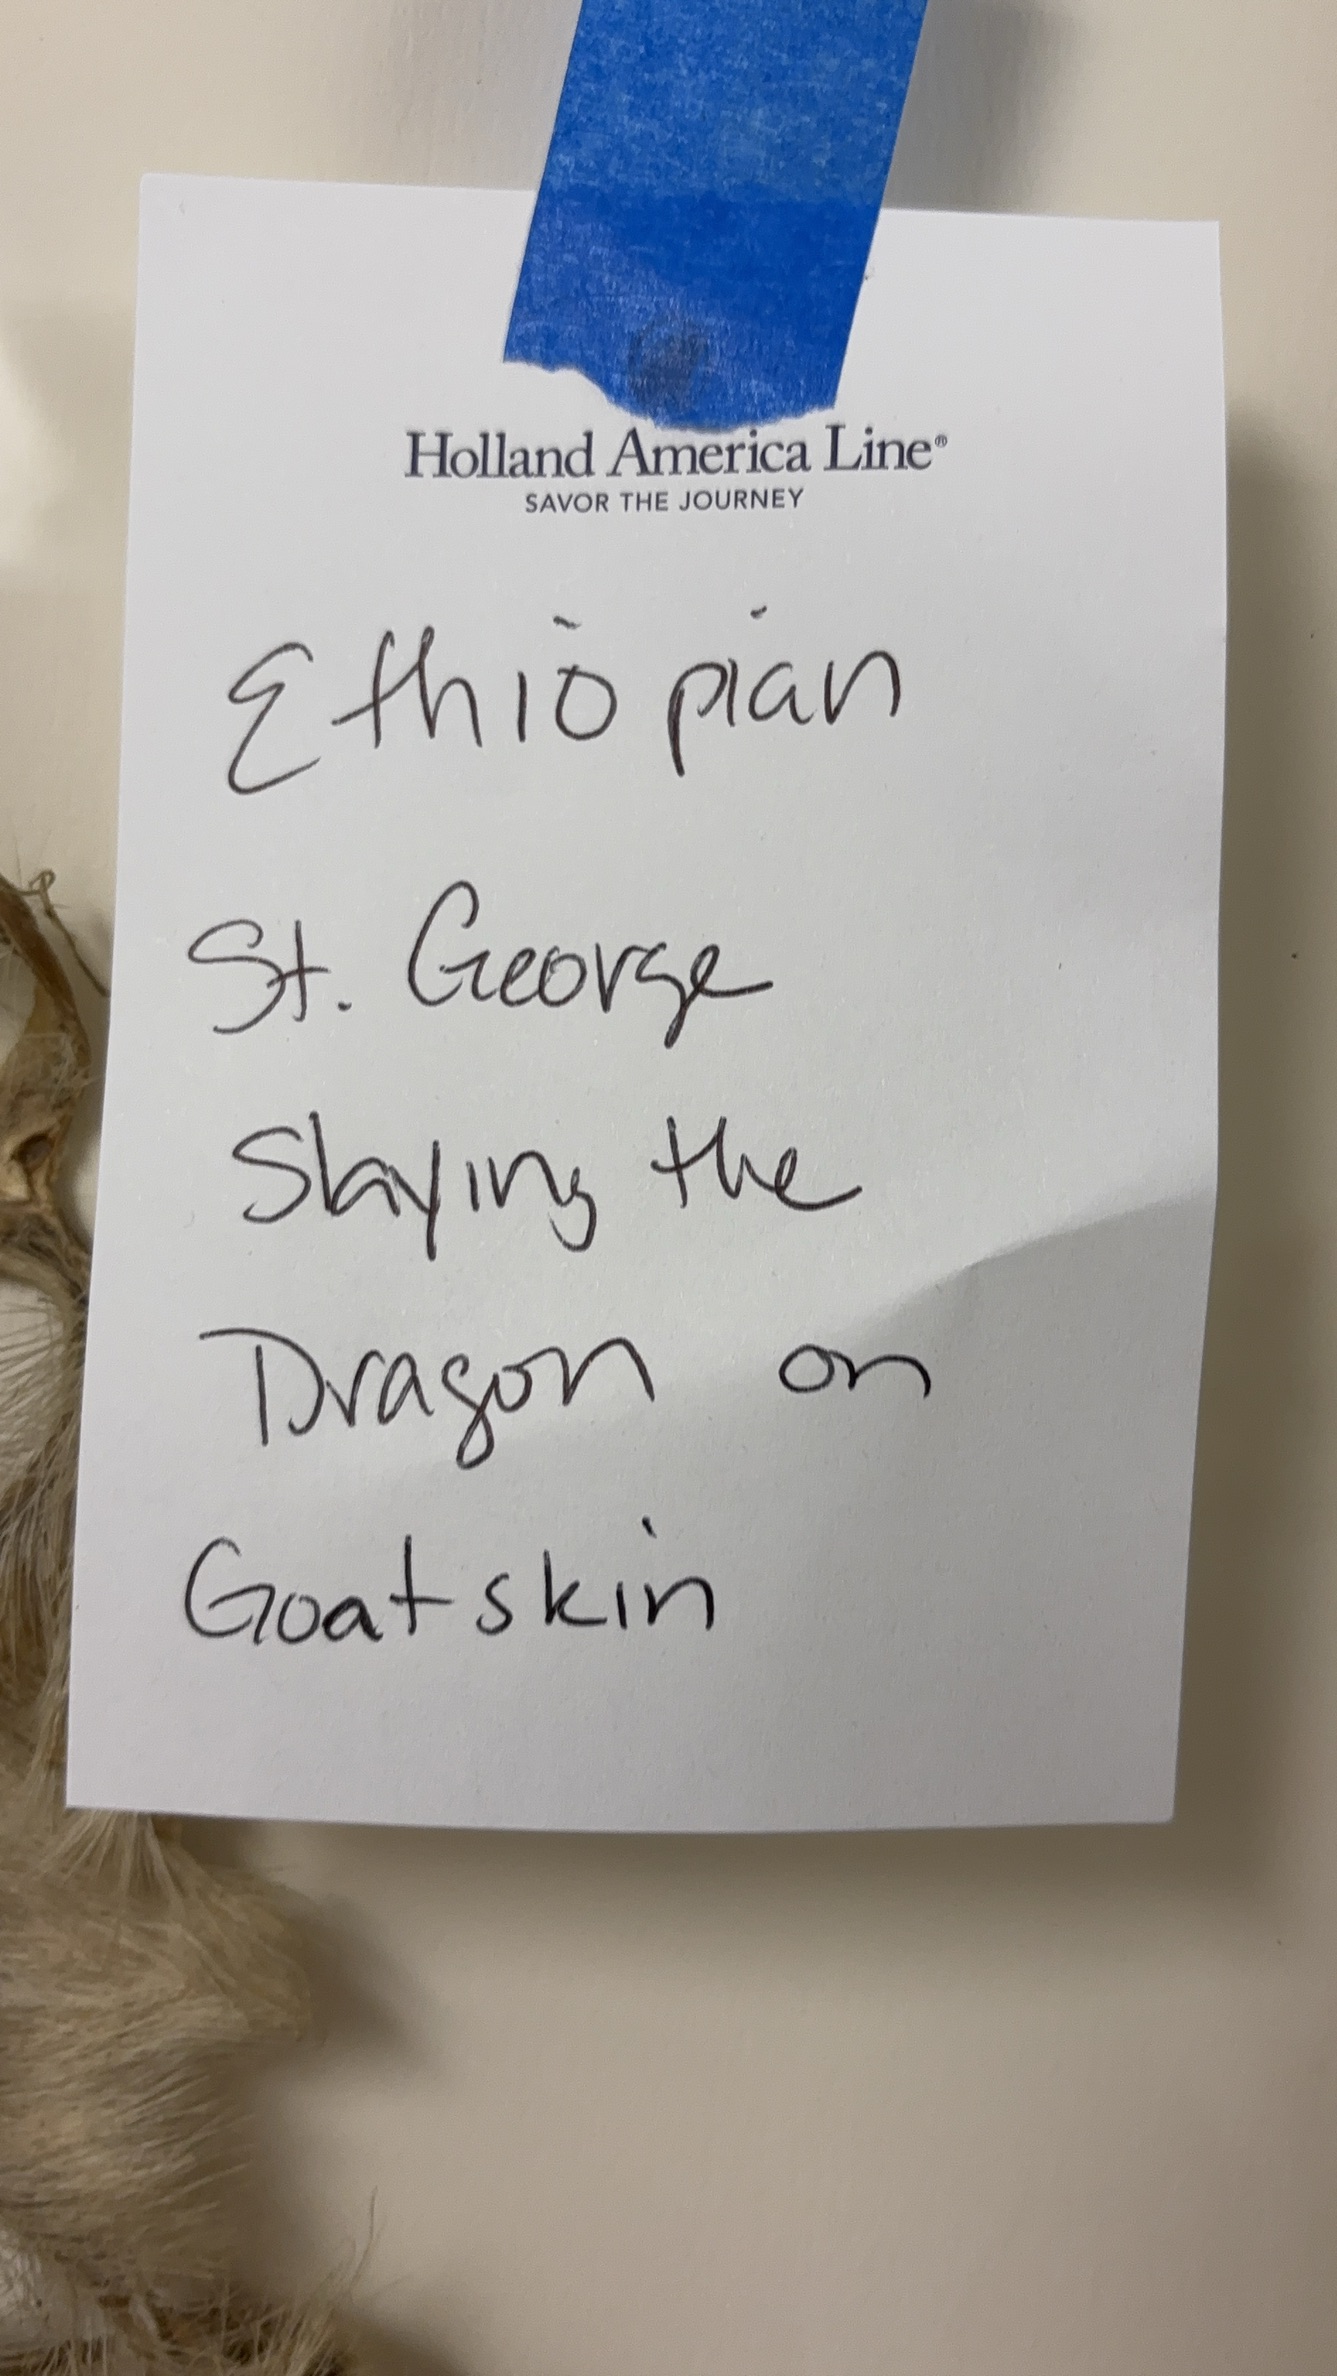 Holland America Line®
SAVOR THE JOURNEY
Ethiopian
St. George
Slaying the
Dragon on
Goatskin